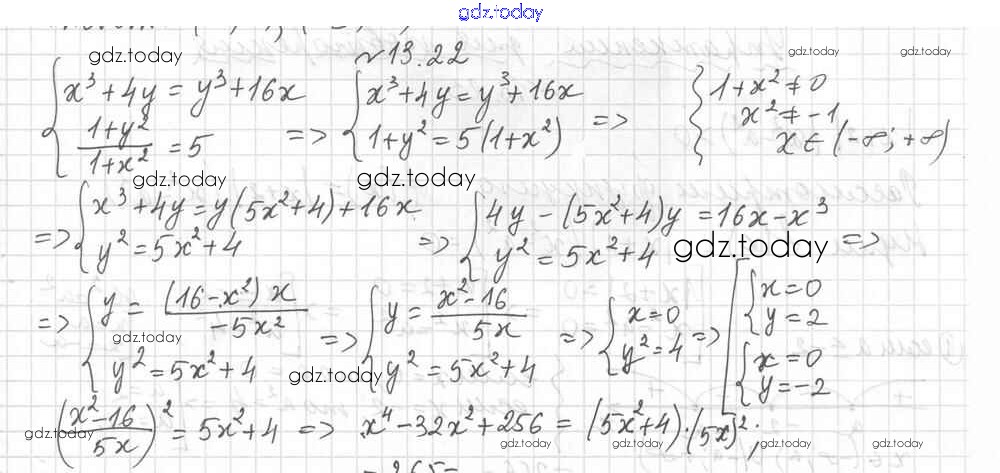 gdz.today
gdz.today
№13.22
gdz.today
gdz.today
{ x³ + 4y = y³ + 16x
(1+y²)/(1+x²) = 5
=> { x³ + 4y = y³ + 16x
1 + y² = 5(1+x²)
=> { 1 + x² ≠ 0
x² ≠ -1
x ∈ (-∞; +∞)
gdz.today
gdz.today
=> { x³ + 4y = y(5x²+4) + 16x
y² = 5x² + 4
=> { 4y - (5x²+4)y = 16x - x³
y² = 5x² + 4
gdz.today
=>
=> { y = (16-x²)x/(-5x²)
y² = 5x² + 4
=> { y = (x²-16)/(5x)
y² = 5x² + 4
=> { x = 0
y² = 4
=> [ { x = 0
y = 2
{ x = 0
y = -2
gdz.today
gdz.today
((x²-16)/(5x))² = 5x² + 4 => x⁴ - 32x² + 256 = (5x²+4)·(5x)²;
gdz.today
gdz.today
gdz.today
gdz.today